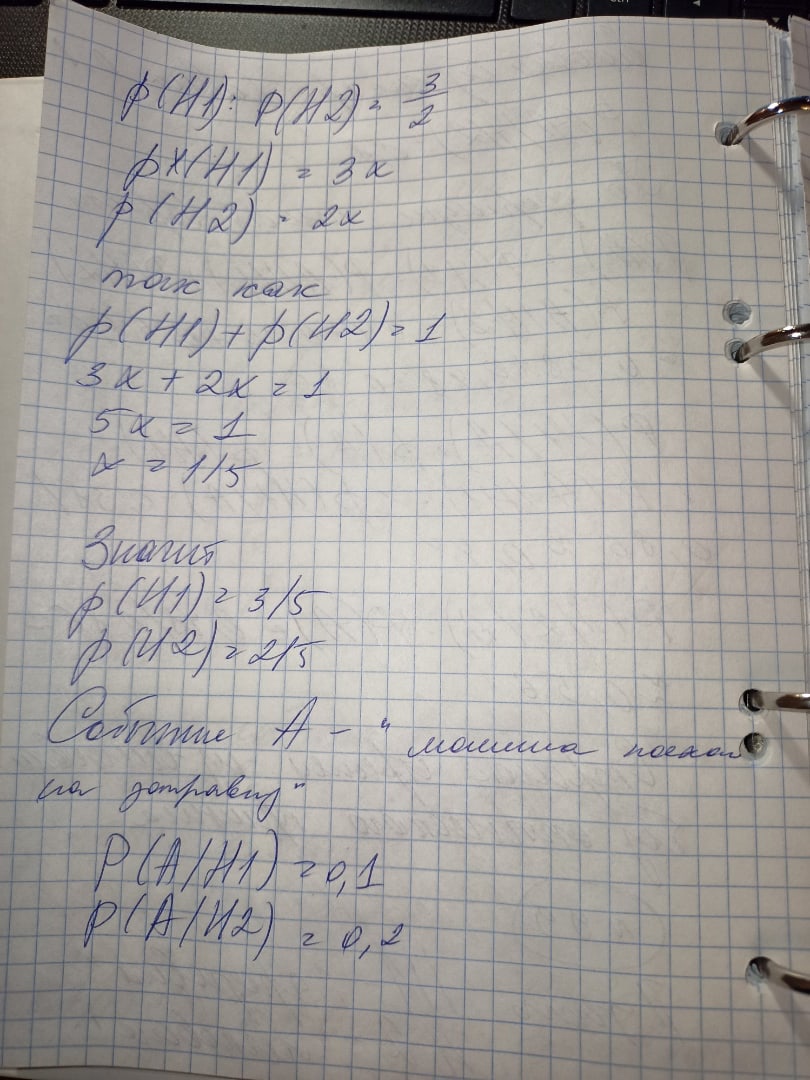 p(H1): P(H2) = 3/2
px(H1) = 3x
p(H2) = 2x
так как
p(H1) + p(H2) = 1
3x + 2x = 1
5x = 1
x = 1/5
Значит
p(H1) = 3/5
p(H2) = 2/5
Событие A - "машина поехал
на заправку"
P(A/H1) = 0,1
P(A/H2) = 0,2